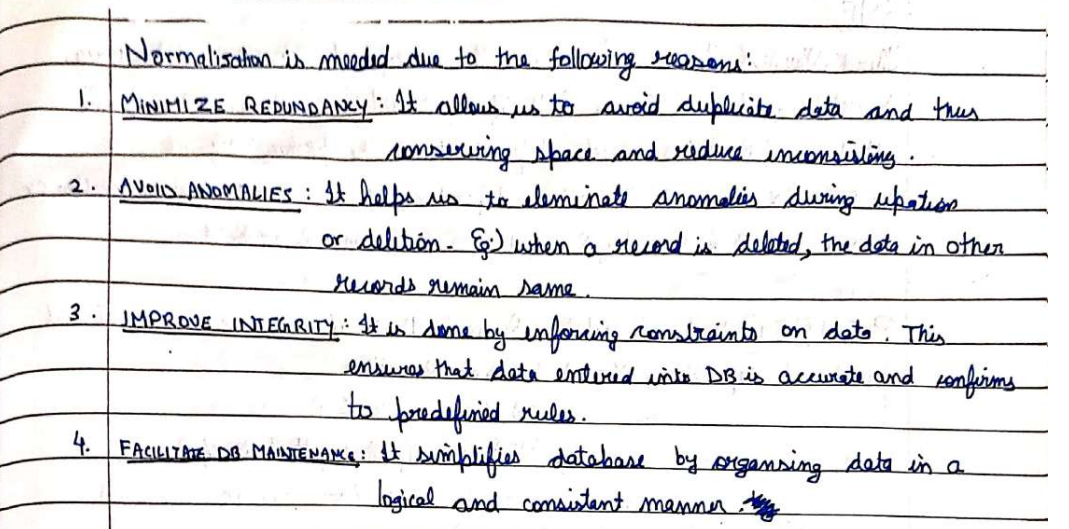 Normalisation is needed due to the following reasons:
1. MINIMIZE REDUNDANCY : It allows us to avoid duplicate data and thus
conserving space and reduce inconsisting.
2. AVOID ANOMALIES : It helps us to eleminate anomalies during upation
or delition. Eg:) when a record is deleted, the data in other
records remain same.
3. IMPROVE INTEGRITY : It is done by enforcing constraints on data. This
ensures that data entered into DB is accurate and confirms
to predefined rules.
4. FACILITATE DB MAINTENANCE : It simplifies database by organsing data in a
logical and consistent manner.